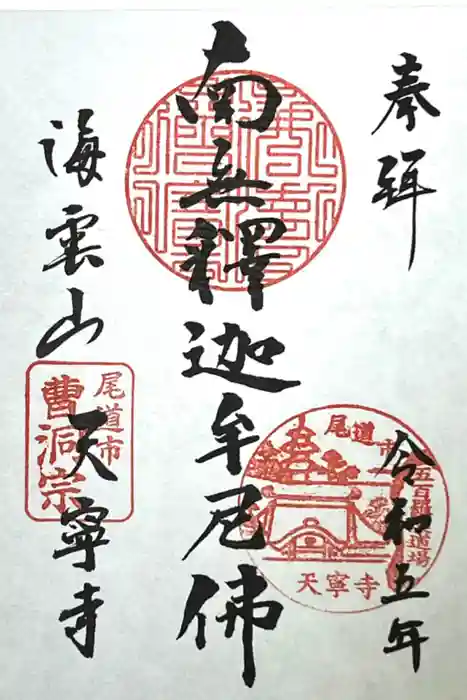 奉拜
令和五年
南無釋迦牟尼佛
海雲山
天寧寺
尾道市
五百羅漢道場
天寧寺
尾道市
曹洞宗